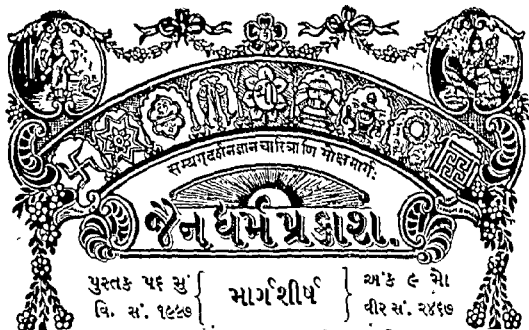 सम्यग्दर्शनज्ञानचारित्राणि मोक्षमार्गः
જૈન ધર્મ પ્રકાશ.
પુસ્તક ૫૬ મું
વિ. સં. ૧૯૯૭
માર્ગશીર્ષ
અંક ૯ મો
વીર સં. ૨૪૬૭